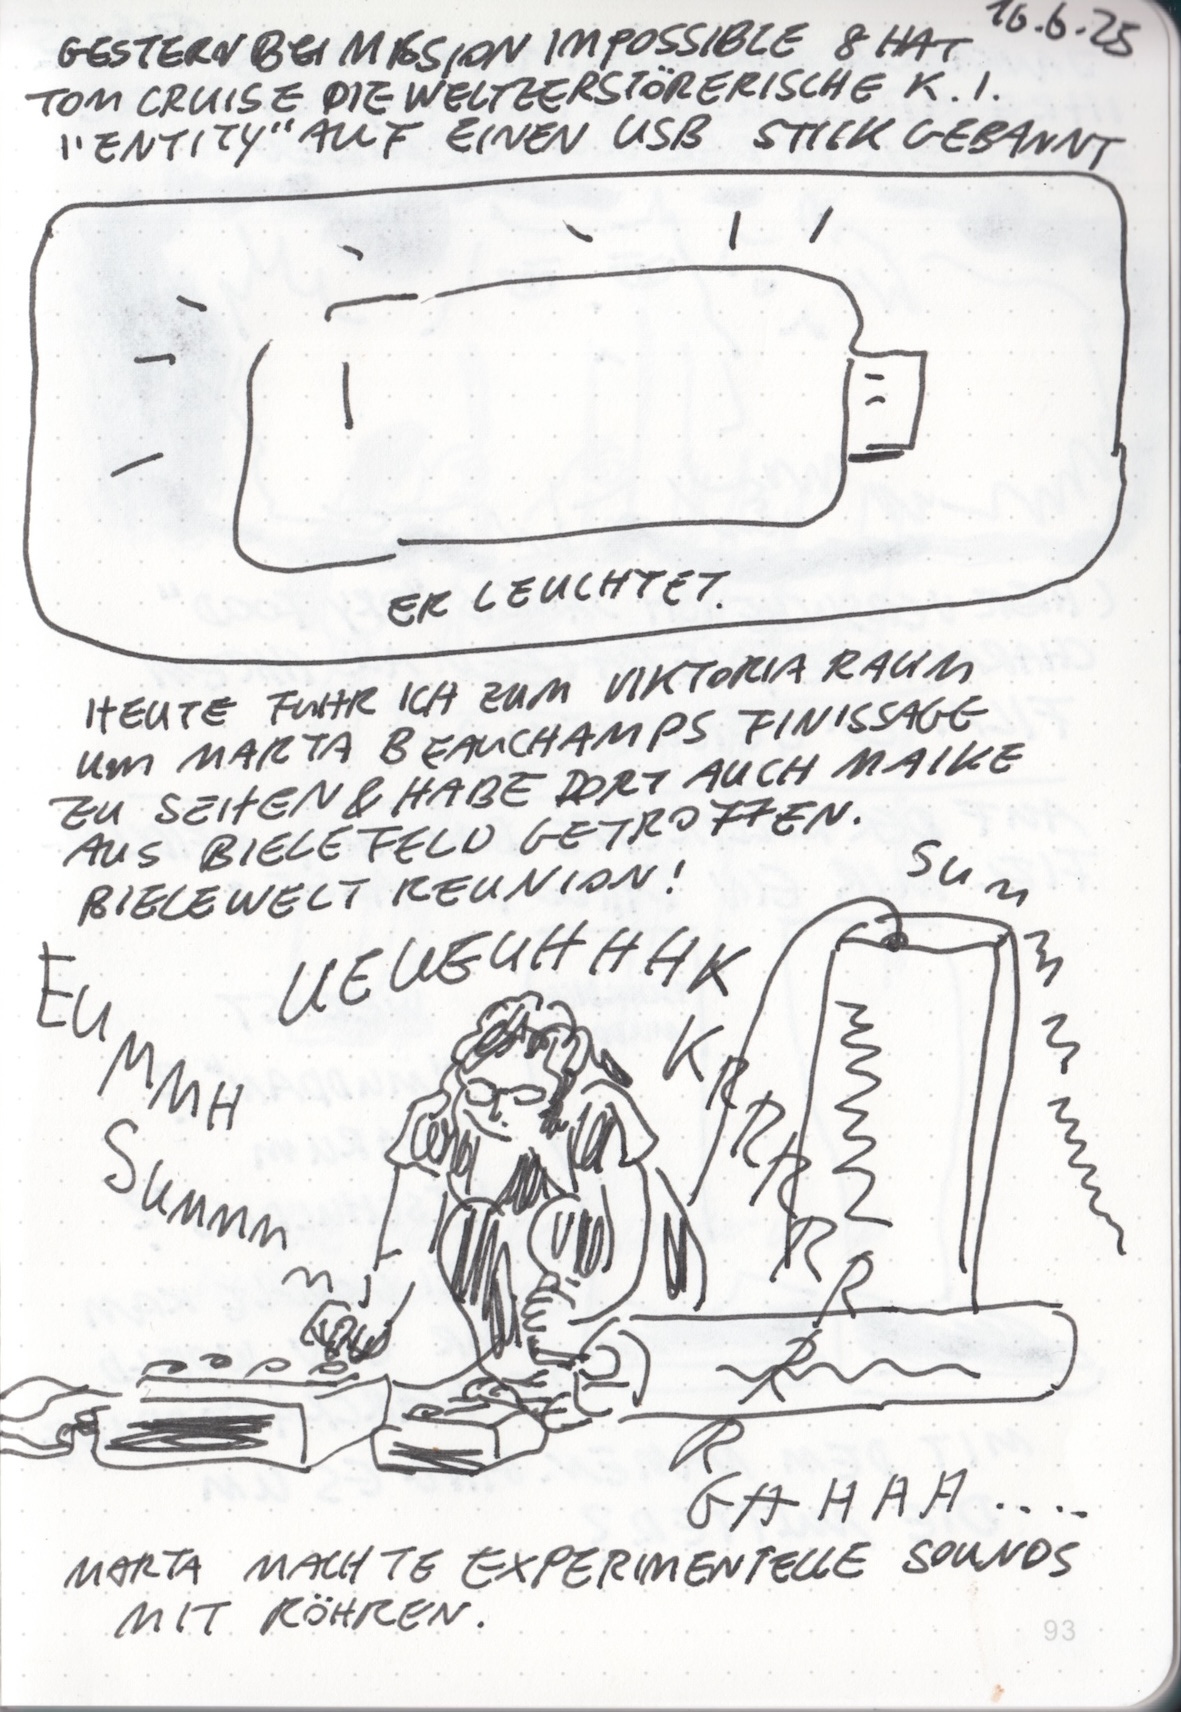 16.6.25
GESTERN BEI MISSION IMPOSSIBLE 8 HAT
TOM CRUISE DIE WELTZERSTÖRERISCHE K.I.
"ENTITY" AUF EINEN USB STICK GEBANNT
ER LEUCHTET.
HEUTE FUHR ICH ZUM VIKTORIA RAUM
UM MARTA BEAUCHAMPS FINISSAGE
ZU SEHEN & HABE DORT AUCH MAIKE
AUS BIELEFELD GETROFFEN.
BIELEWELT REUNION!
SUM
EUMMH
UEUEUHHHK
KRRRARRRRR
SUMMM
GAHAHA....
MARTA MACHTE EXPERIMENTELLE SOUNDS
MIT RÖHREN.
93